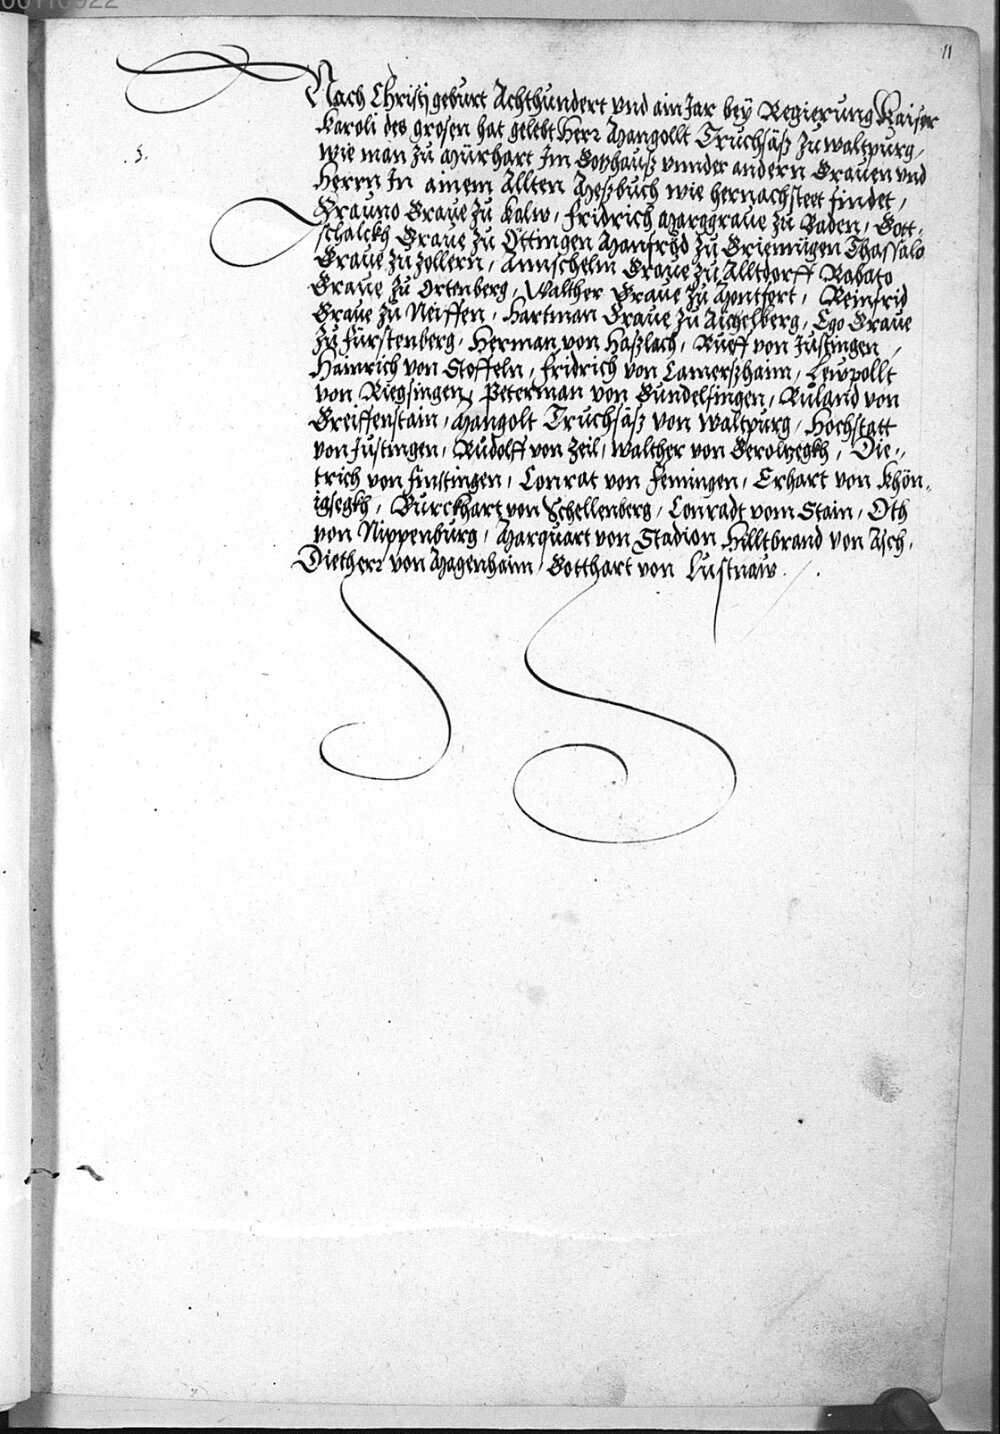 11
Nach Christj geburt Achthundert vnd ain Jar bey Regierung Kaiser
Karoli des grosen hat gelebt Herr Mangollt Truchsäß zu waltpurg,
5.
wie man zu Mürhart Im Gotzhauß vnnder andern Grauen vnd
Herrn In ainem Allten Meßbuch wie hernachsteet findet,
Grauno Graue zu Kalw, fridrich Marggraue zu Baden, Gott-
schalckh Graue zu Ottingen Manfryd zu Grieningen Thassalo
Graue zu Zollern, Annschelm Graue zu Alltdorff Rabato
Graue zu Ortenberg, Walther Graue zu Montfort, Reinfrid
Graue zu Neiffen, Hartman Graue zu Aichelberg, Ego Graue
zu fürstenberg, Herman von Haßlach, Rueff von Justingen,
Hainrich von Stoffeln, fridrich von Lamerßhann, Lewpollt
von Riegsingen, Peterman von Gundelfingen, Ruland von
Greiffenstain, Mangolt Truchsäß von waltpurg, Hochstatt
von Justingen, Rudolff von Zeil, walther von Geroltzegkh, Die-
trich von finstingen, Conrat von Femingen, Erhart von Khön-
igsegkh, Burckhart von Schellenberg, Conradt vom Stain, Oth
von Nippenburg, Marquart von Stadion Hilltbrand von Asch,
Dietherr von Magenhaim, Gotthart von Lustnaw.